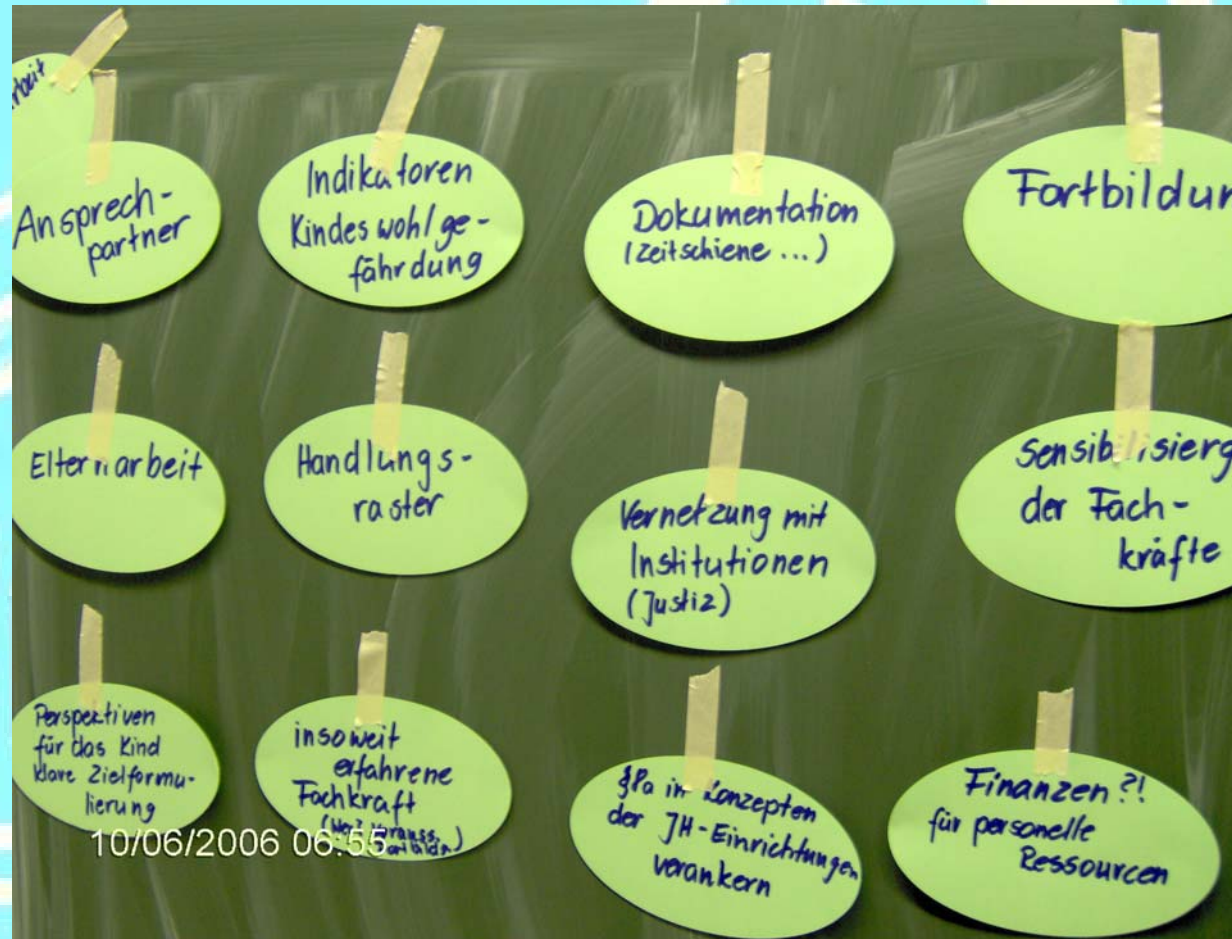 Ansprech-
partner
Indikatoren
Kindeswohlge-
fährdung
Dokumentation
(Zeitschiene ...)
Fortbildun
Elternarbeit
Handlungs-
raster
Vernetzung mit
Institutionen
(Justiz)
Sensibilisierg
der Fach-
kräfte
Perspektiven
für das Kind
klare Zielformu-
lierung
insoweit
erfahrene
Fachkraft
§8a in Konzepten
der JH-Einrichtungen
verankern
Finanzen ?!
für personelle
Ressourcen
10/06/2006 06:55